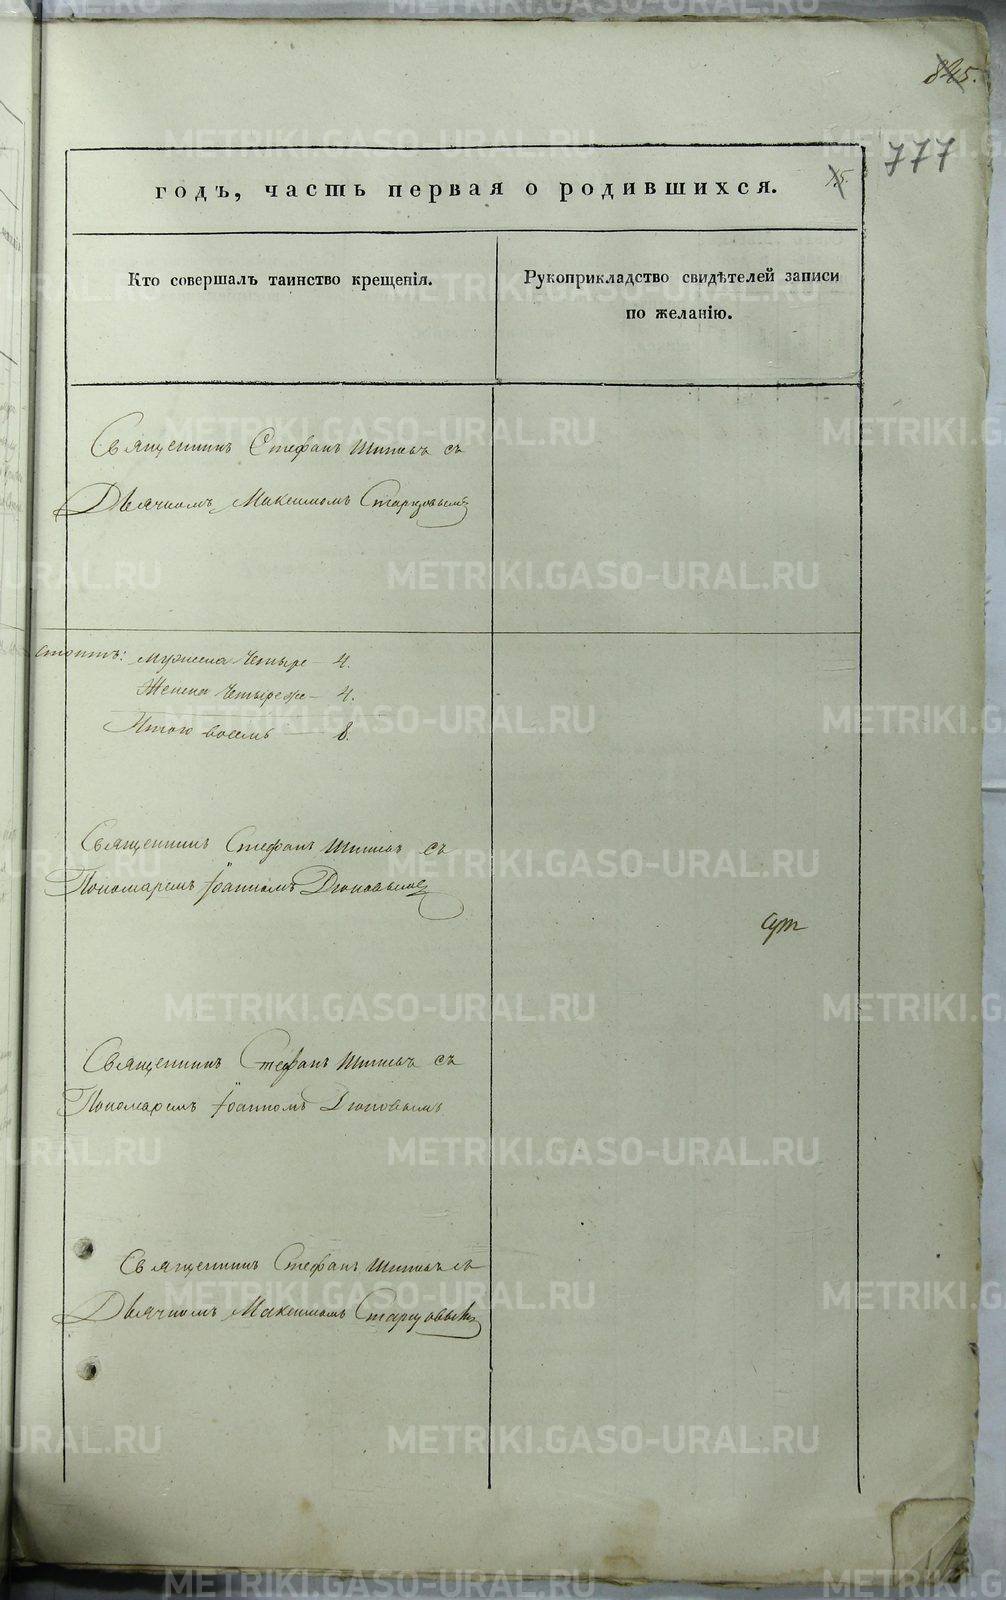 845.
777
15.
годъ, часть первая о родившихся.
Кто совершалъ таинство крещенія.
Рукоприкладство свидѣтелей записи
по желанію.
Священникъ Стефанъ съ
Дьячкомъ Максимомъ Старцовымъ
мужеска Четыре — 4.
Женска Четыреже — 4.
Итого восемь — 8.
Священникъ Стефанъ съ
Пономаремъ Іоанномъ
Священникъ Стефанъ съ
Пономаремъ Іоанномъ
Священникъ Стефанъ съ
Дьячкомъ Максимомъ Старцовымъ
METRIKI.GASO-URAL.RU